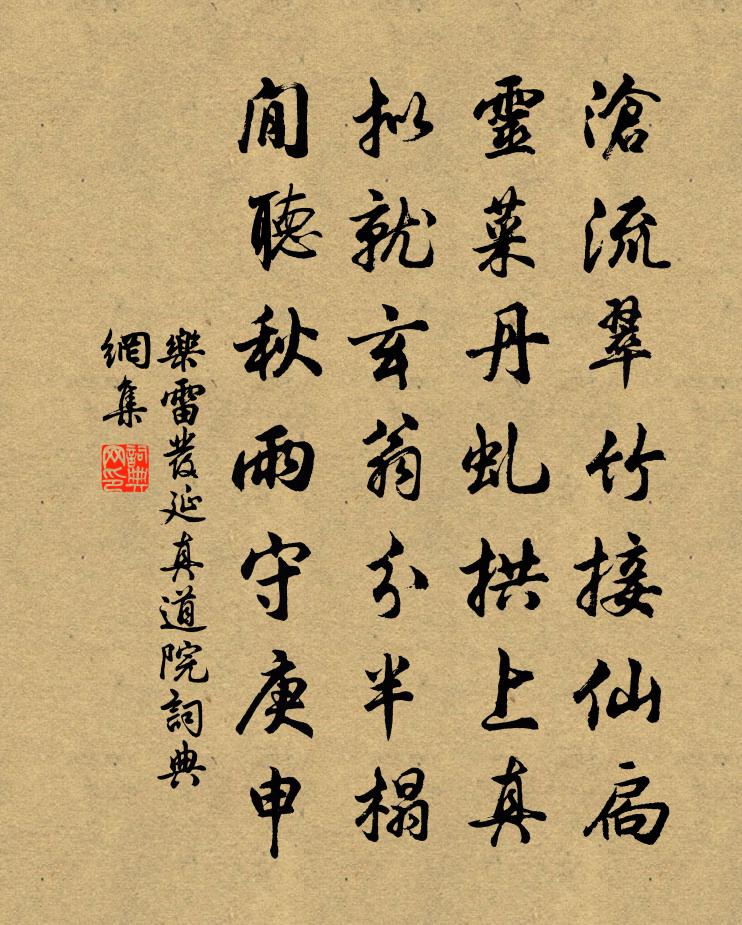 滄流翠竹接仙扃
靈菜丹虬拱上真
拟就玄翁分半榻
閒聽秋雨守庚申
樂雷發延真道院詞典
網集
詞典
网印